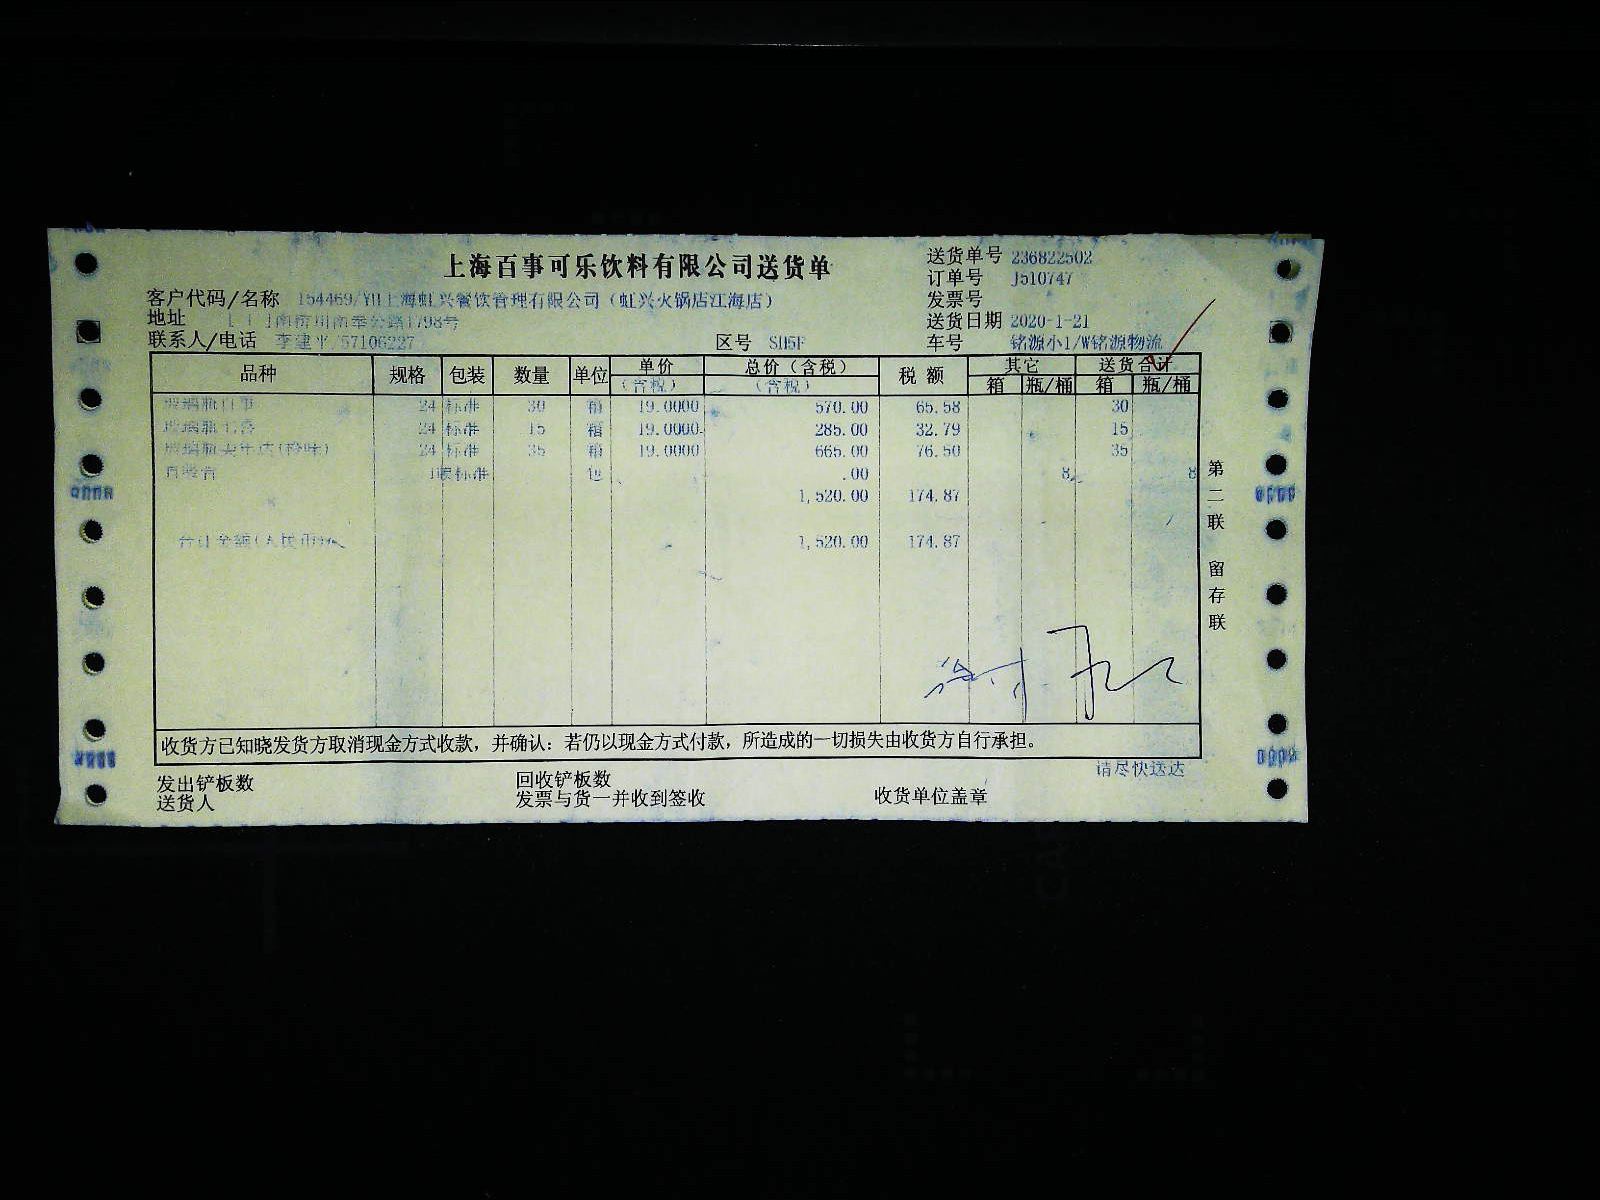 上海百事可乐饮料有限公司送货单
送货单号 236822502
订单号 J510747
客户代码/名称 154469/YH上海虹兴餐饮管理有限公司（虹兴火锅店江海店）
发票号
地址 南奉公路1798号
送货日期 2020-1-21
联系人/电话 李建平/57106227
区号
车号 铭源小1/W铭源物流
品种 规格 包装 数量 单位 单价（含税） 总价（含税）（含税） 税 额 其它 箱 瓶/桶 送货合计 箱 瓶/桶
玻璃瓶百事 24 标准 30 箱 19.0000 570.00 65.58 30
玻璃瓶七喜 24 标准 15 箱 19.0000 285.00 32.79 15
玻璃瓶美年达(橙味) 24 标准 35 箱 19.0000 665.00 76.50 35
百事 标准 .00 8 8
1,520.00 174.87
合计金额(人民币) 1,520.00 174.87
第二联 留存联
收货方已知晓发货方取消现金方式收款，并确认：若仍以现金方式付款，所造成的一切损失由收货方自行承担。
请尽快送达
发出铲板数 回收铲板数
送货人 发票与货一并收到签收 收货单位盖章